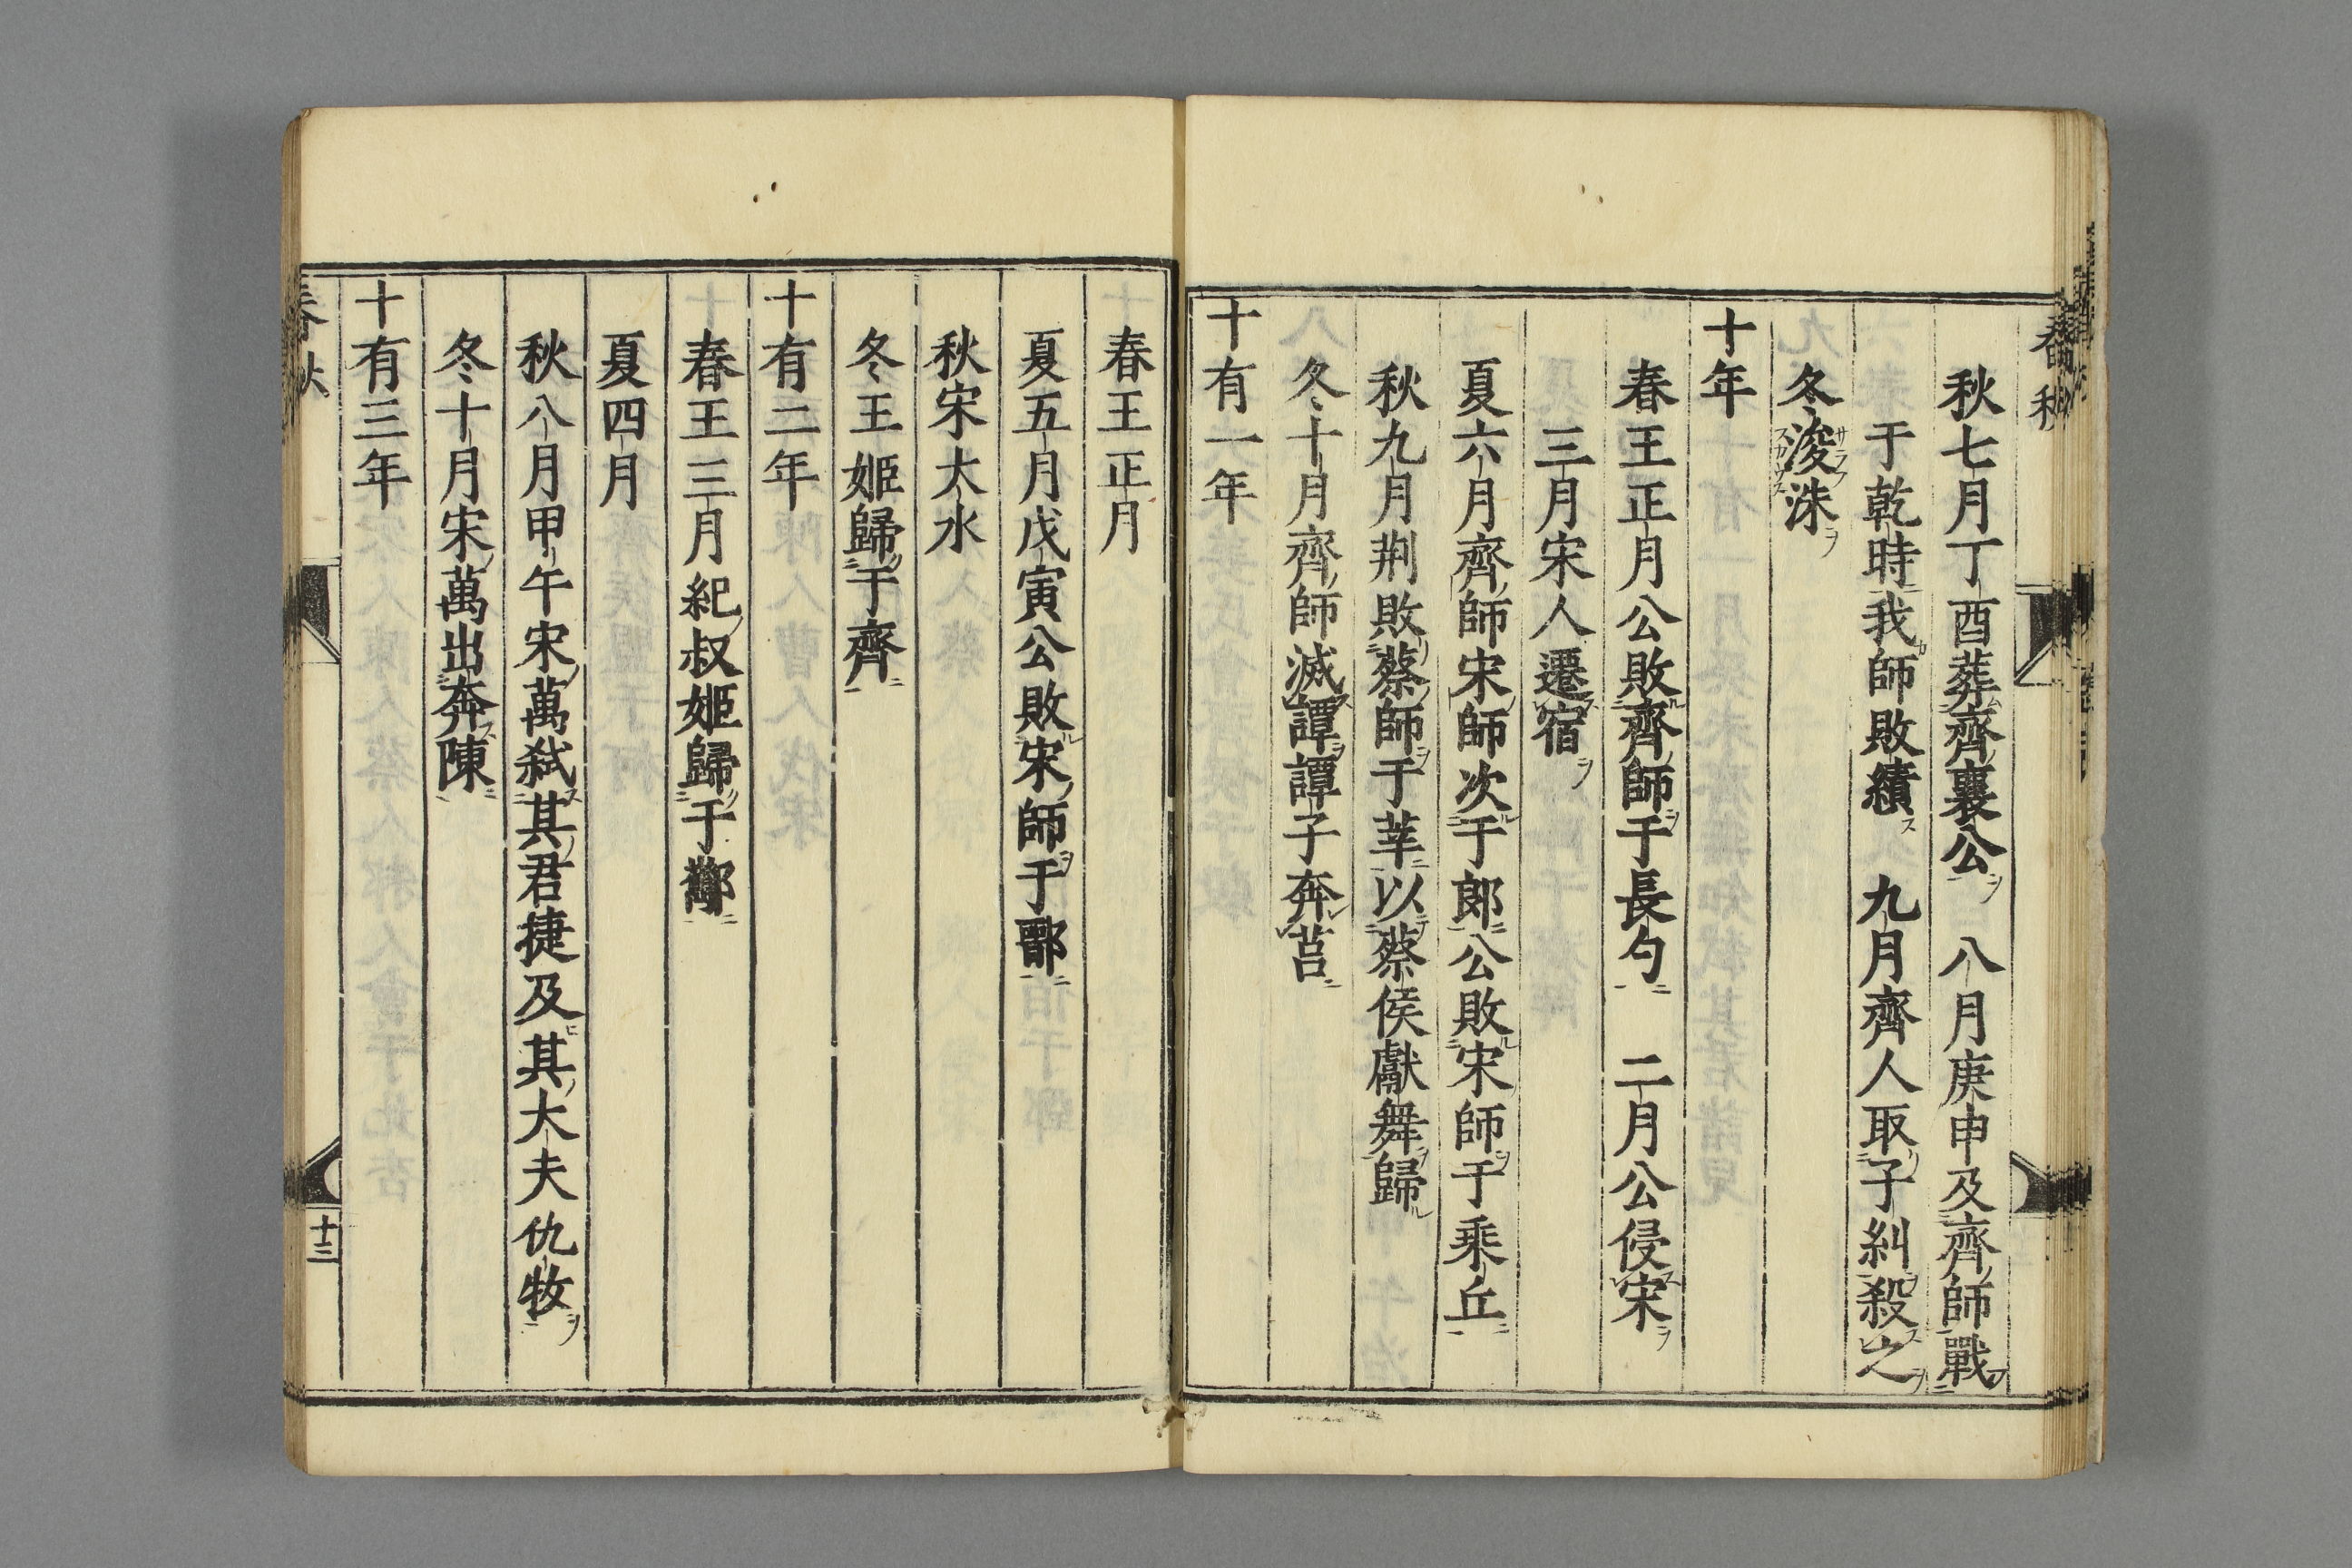 春秋
秋七月丁酉葬齊襄公　八月庚申及齊師戰
于乾時我師敗績　九月齊人取子糾殺之
冬浚洙
十年
春王正月公敗齊師于長勺　二月公侵宋
三月宋人遷宿
夏六月齊師宋師次于郎公敗宋師于乘丘
秋九月荆敗蔡師于莘以蔡侯獻舞歸
冬十月齊師滅譚譚子奔莒
十有一年
春王正月
夏五月戊寅公敗宋師于鄑
秋宋大水
冬王姬歸于齊
十有二年
春王三月紀叔姬歸于酅
夏四月
秋八月甲午宋萬弑其君捷及其大夫仇牧
冬十月宋萬出奔陳
十有三年
春秋
十三